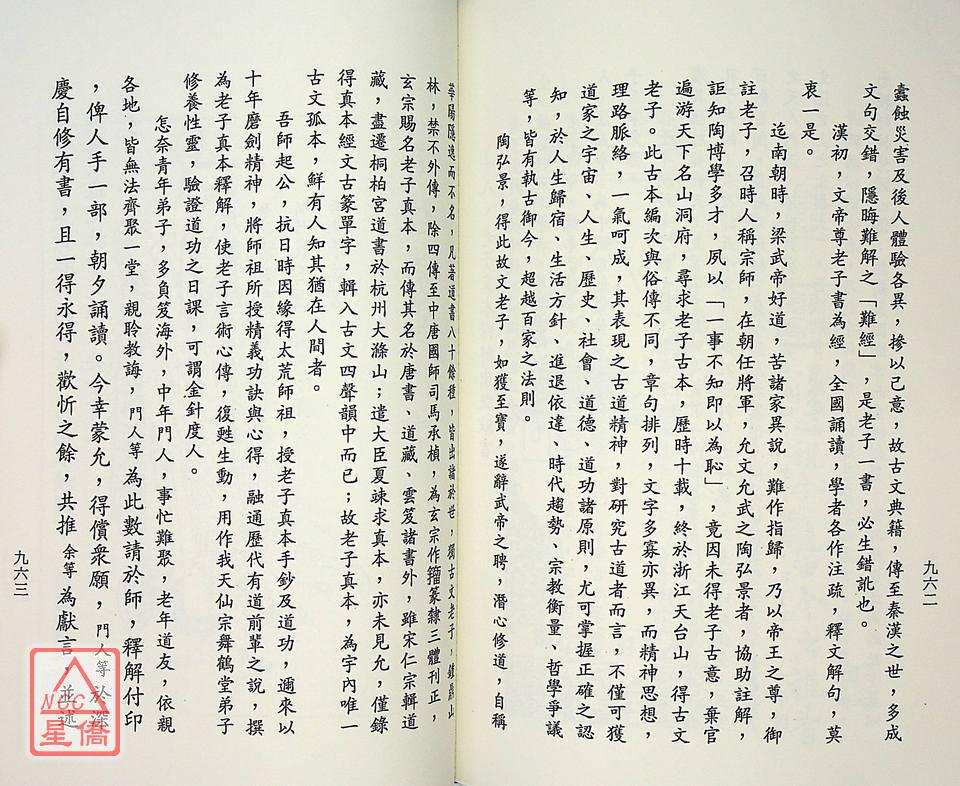 蠹蝕災害及後人體驗各異，摻以己意，故古文典籍，傳至秦漢之世，多成
文句交錯，隱晦難解之「難經」，是老子一書，必生錯訛也。
漢初，文帝尊老子書為經，全國誦讀，學者各作注疏，釋文解句，莫
衷一是。
迄南朝時，梁武帝好道，苦諸家異說，難作指歸，乃以帝王之尊，御
註老子，召時人稱宗師，在朝任將軍，允文允武之陶弘景者，協助註解，
詎知陶博學多才，夙以「一事不知即以為恥」，竟因未得老子古意，棄官
遍游天下名山洞府，尋求老子古本，歷時十載，終於浙江天台山，得古文
老子。此古本編次與俗傳不同，章句排列，文字多寡亦異，而精神思想，
理路脈絡，一氣呵成，其表現之古道精神，對研究古道者而言，不僅可獲
道家之宇宙、人生、歷史、社會、道德、道功諸原則，尤可掌握正確之認
知，於人生歸宿、生活方針、進退依違、時代趨勢、宗教衡量、哲學爭議
等，皆有執古御今，超越百家之法則。
陶弘景，得此故文老子，如獲至寶，遂辭武帝之聘，潛心修道，自稱
九六二
華陽隱逸而不名，凡著道書八十餘種，皆出諸於世，獨古文老子，鎮鼎山
林，禁不外傳，除四傳至中唐國師司馬承楨，為玄宗作籀篆隸三體刊正，
玄宗賜名老子真本，而傳其名於唐書、道藏、雲笈諸書外，雖宋仁宗輯道
藏，盡遷桐柏宮道書於杭州大滌山；遣大臣夏竦求真本，亦未見允，僅錄
得真本經文古篆單字，輯入古文四聲韻中而已；故老子真本，為宇內唯一
古文孤本，鮮有人知其猶在人間者。
吾師起公，抗日時因緣得太荒師祖，授老子真本手鈔及道功，邇來以
十年磨劍精神，將師祖所授精義功訣與心得，融通歷代有道前輩之說，撰
為老子真本釋解，使老子言術心傳，復甦生動，用作我天仙宗舞鶴堂弟子
修養性靈，驗證道功之日課，可謂金針度人。
怎奈青年弟子，多負笈海外，中年門人，事忙難聚，老年道友，依親
各地，皆無法齊聚一堂，親聆教誨，門人等為此數請於師，釋解付印
，俾人手一部，朝夕誦讀。今幸蒙允，得償眾願，門人等於深
慶自修有書，且一得永得，歡忻之餘，共推余等為獻言，並述
九六三
NCC
星僑